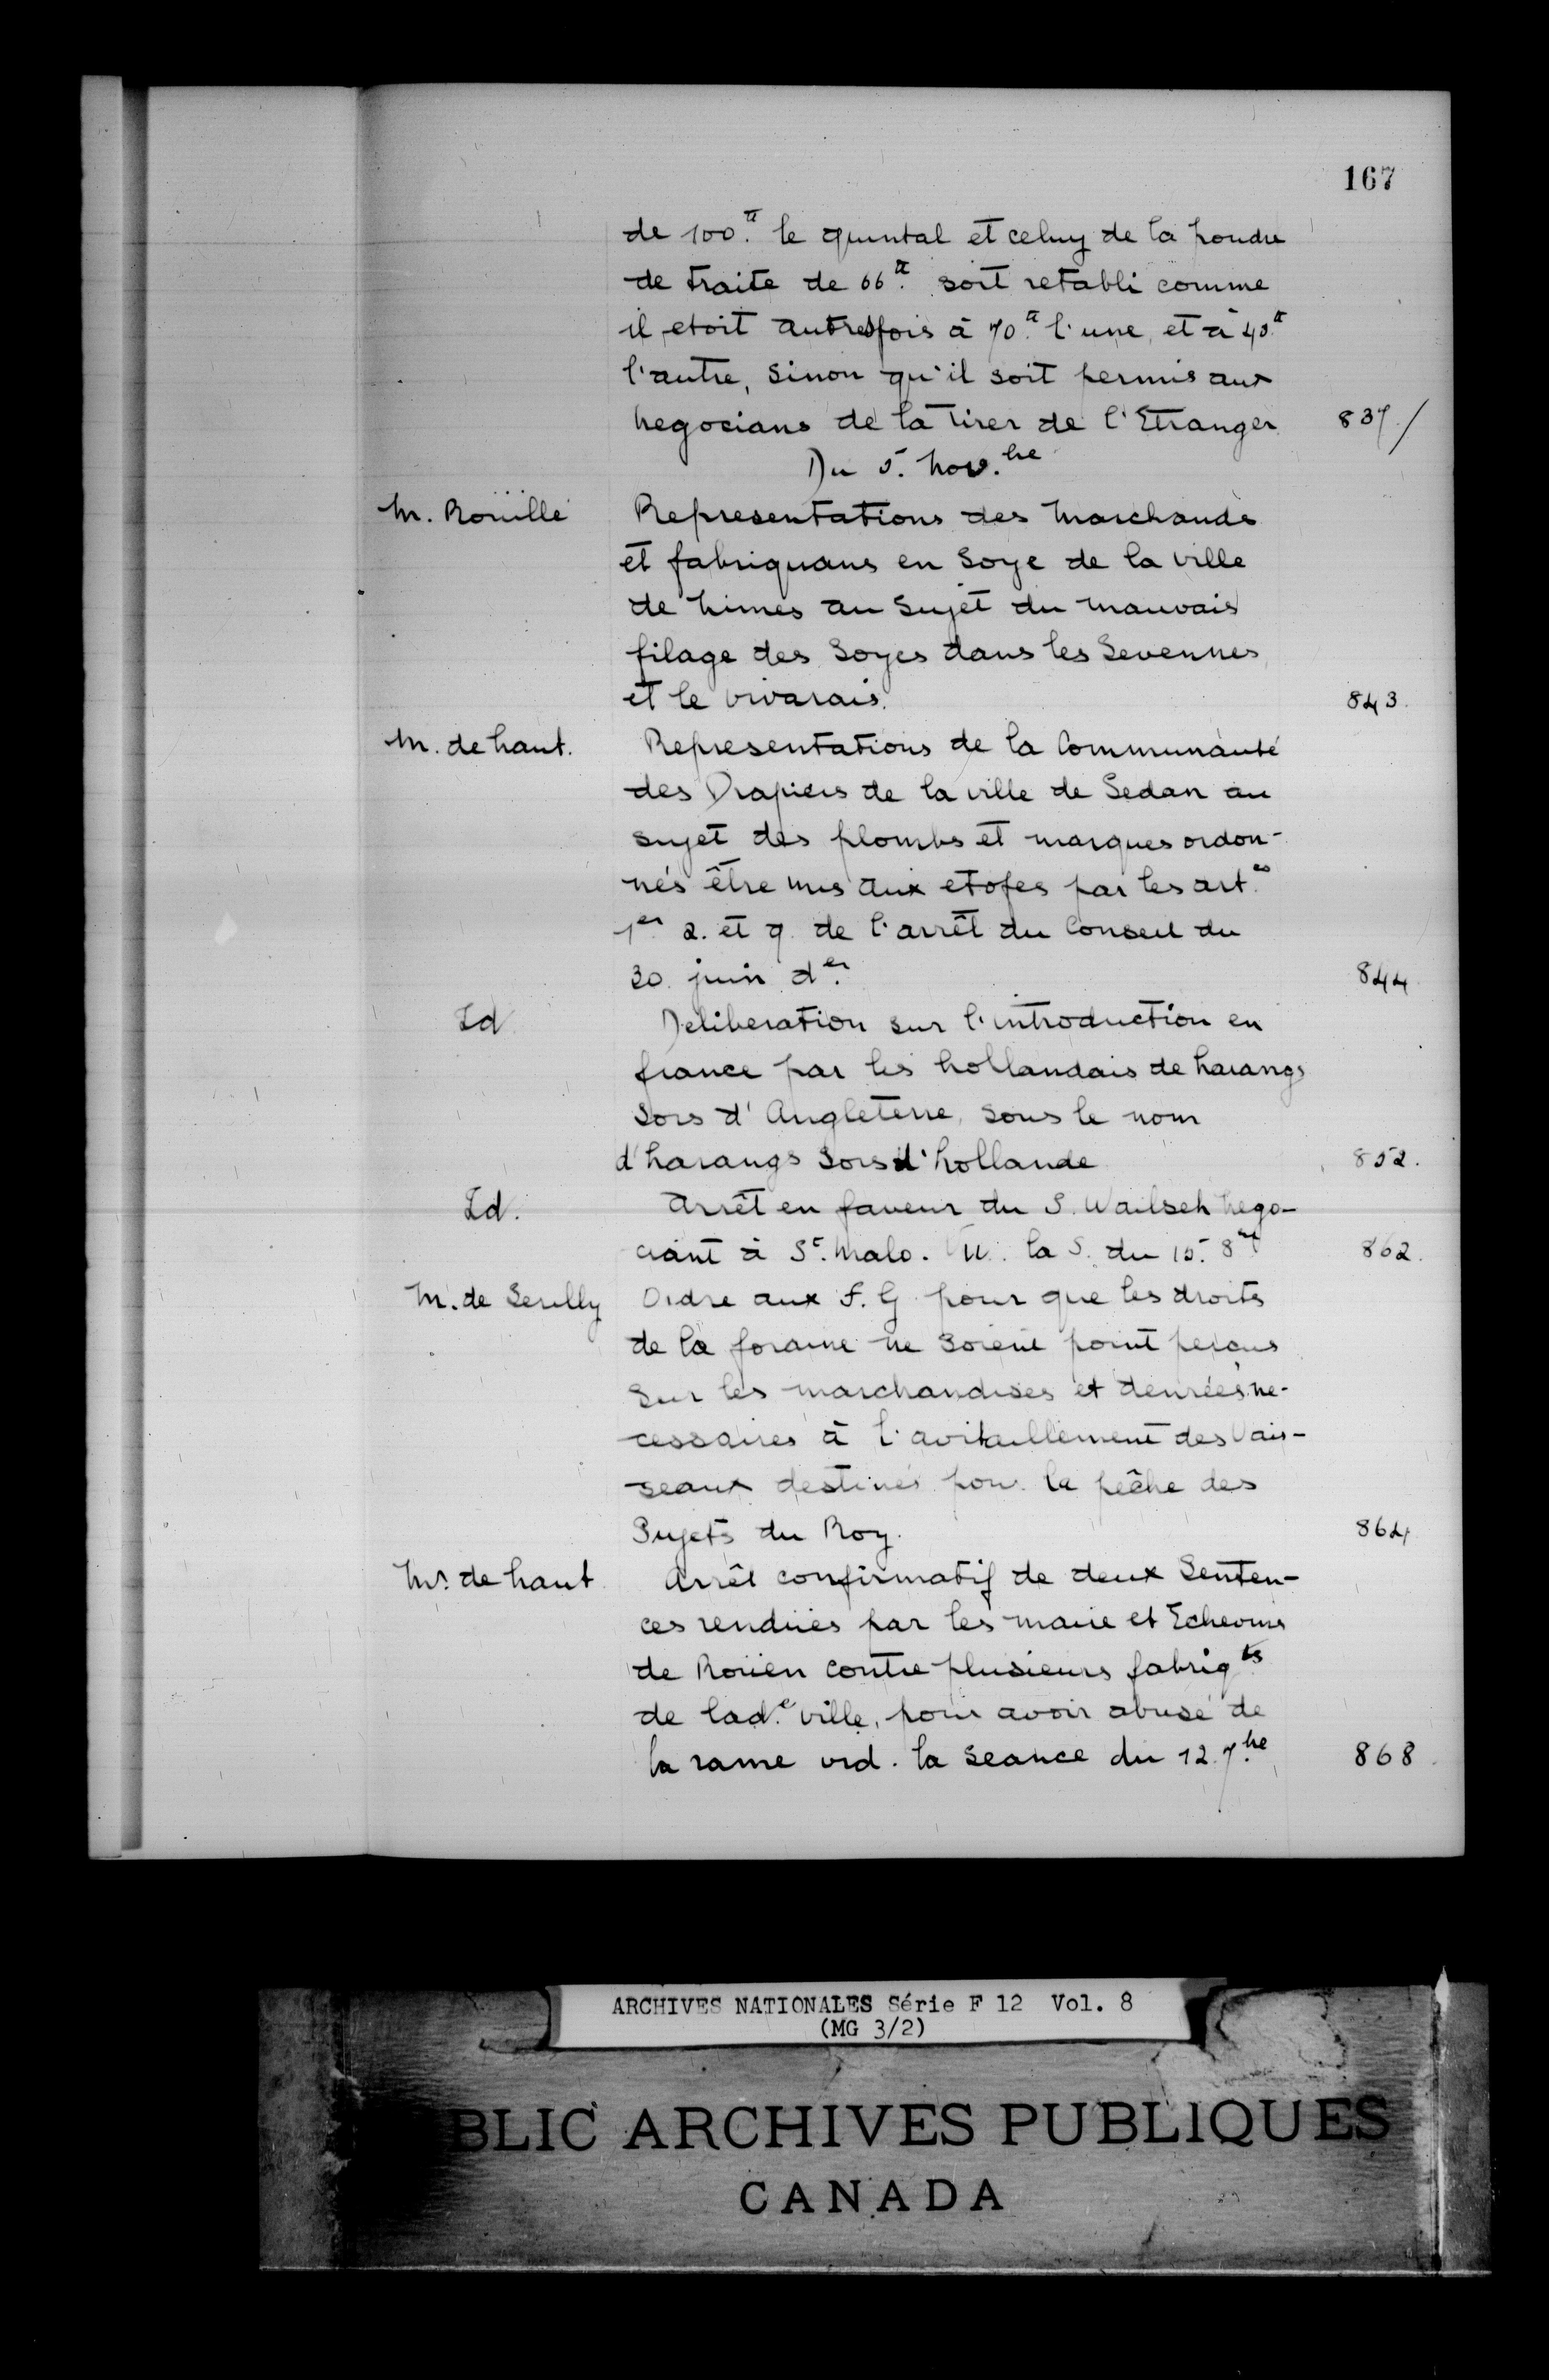 167
de 100.tt le quintal et celuy de la poudre
de traite de 66tt. soit retabli comme
il etoit autresfois à 70.tt l'une, et à 40.tt
l'autre, Sinon qu'il soit permis aux
negocians de la tirer de l'Etranger 837/
Du 5. Nov.bre
M. Roüillé Representations des Marchands
et fabriquans en Soye de la ville
de Nimes au Sujet du mauvais
filage des Soyes dans les Sevennes
et le vivarais. 843.
M. de haut. Representations de la Communauté
des Drapiers de la ville de Sedan au
sujet des plombs et marques ordon-
nés être mis aux etofes par les art.es
1er 2. et 9. de l'arrêt du Conseil du
30. juin der. 844
Id Deliberation sur l'introduction en
france par les hollandais de harangs
Sors d'Angleterre, sous le nom
d'harangs Sors d'hollande 852.
Id. Arrêt en faveur du S. Wailsch Nego-
ciant à St. Malo. la S. du 15. 8bre 862.
M. de Serilly Ordre aux F. G pour que les droits
de la foraine ne soient point perçus
Sur les marchandises et denrées ne-
cessaires à l'avitaillement des Vais-
seaux destinés pour la pêche des
Sujets du Roy. 864
Mr. de haut Arrêt confirmatif de deux Senten-
ces rendües par les maire et Echevins
de Roüen contre plusieurs fabriqts
de lad.e ville, pour avoir abusé de
la rame vid. la seance du 12. 7.bre 868.
ARCHIVES NATIONALES Série F 12 Vol. 8
(MG 3/2)
BLIC ARCHIVES PUBLIQUES
CANADA